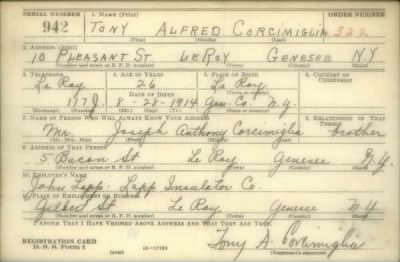 SERIAL NUMBER 1. NAME (Print) ORDER NUMBER
942 TONY ALFRED CORCIMIGLIA 322
(First) (Middle) (Last)
2. ADDRESS (Print)
10 PLEASANT ST LEROY GENESEE N.Y.
(Number and street or R. F. D. number) (Town) (County) (State)
3. TELEPHONE 4. AGE IN YEARS 5. PLACE OF BIRTH 6. COUNTRY OF CITIZENSHIP
Le Roy 26 Le Roy
DATE OF BIRTH
177 J. 8-28-1914 Gen. Co. N.Y.
7. NAME OF PERSON WHO WILL ALWAYS KNOW YOUR ADDRESS 8. RELATIONSHIP OF THAT PERSON
Mr. Joseph Anthony Corcimiglia brother
(Mr., Mrs., Miss) (First) (Middle) (Last)
9. ADDRESS OF THAT PERSON
5 Bacon St Le Roy Genesee N.Y.
(Number and street or R. F. D. number) (Town) (County) (State)
10. EMPLOYER'S NAME
John Lapp: Lapp Insulator Co.
11. PLACE OF EMPLOYMENT OR BUSINESS
Gilbert St Le Roy Genesee N.Y.
(Number and street or R. F. D. number) (Town) (County) (State)
I AFFIRM THAT I HAVE VERIFIED ABOVE ANSWERS AND THAT THEY ARE TRUE.
REGISTRATION CARD
D. S. S. Form 1 (over) Tony A. Corcimiglia
(Registrant's signature)